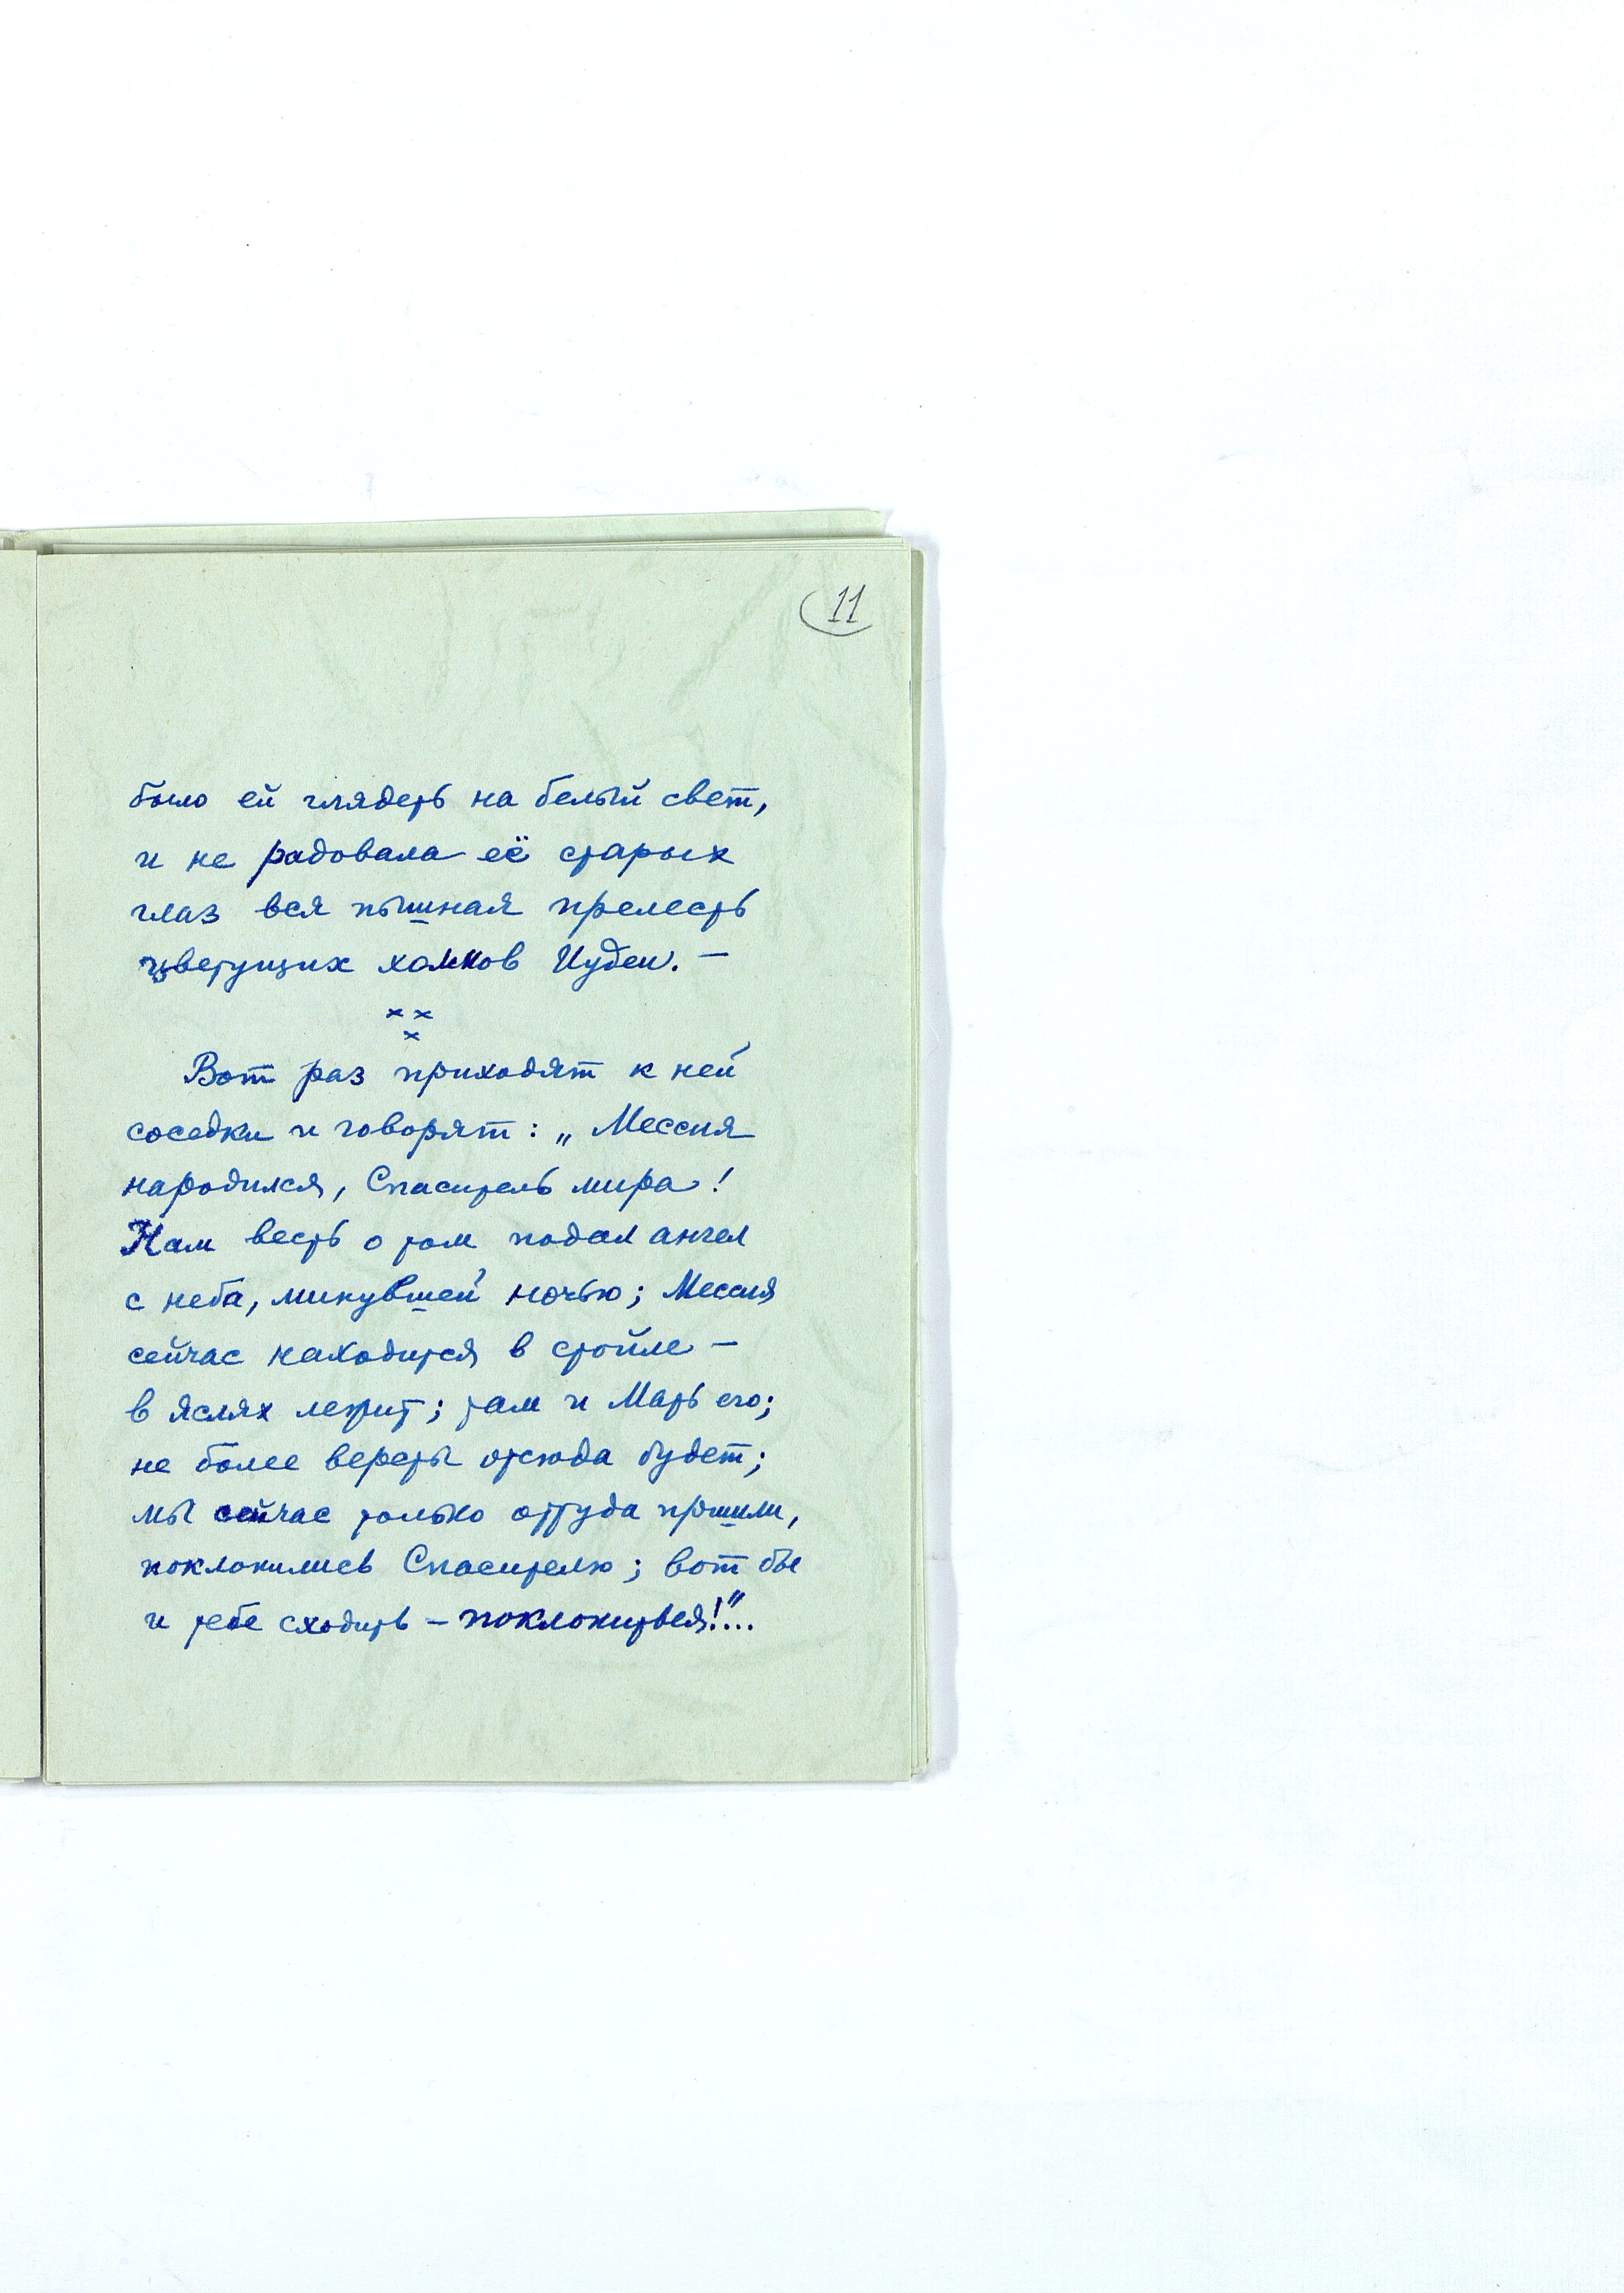 11
было ей глядеть на белый свет,
и не радовала её старых
глаз вся пышная прелесть
цветущих холмов Иудеи. —
× ×
×
Вот раз приходят к ней
соседки и говорят: „Мессия
народился, Спаситель мира!
Нам весть о том подал ангел
с неба, минувшей ночью; Мессия
сейчас находится в стойле —
в яслях лежит; там и Мать его;
не более версты отсюда будет;
мы сейчас только оттуда пришли,
поклонились Спасителю; вот бы
и тебе сходить — поклониться!"...